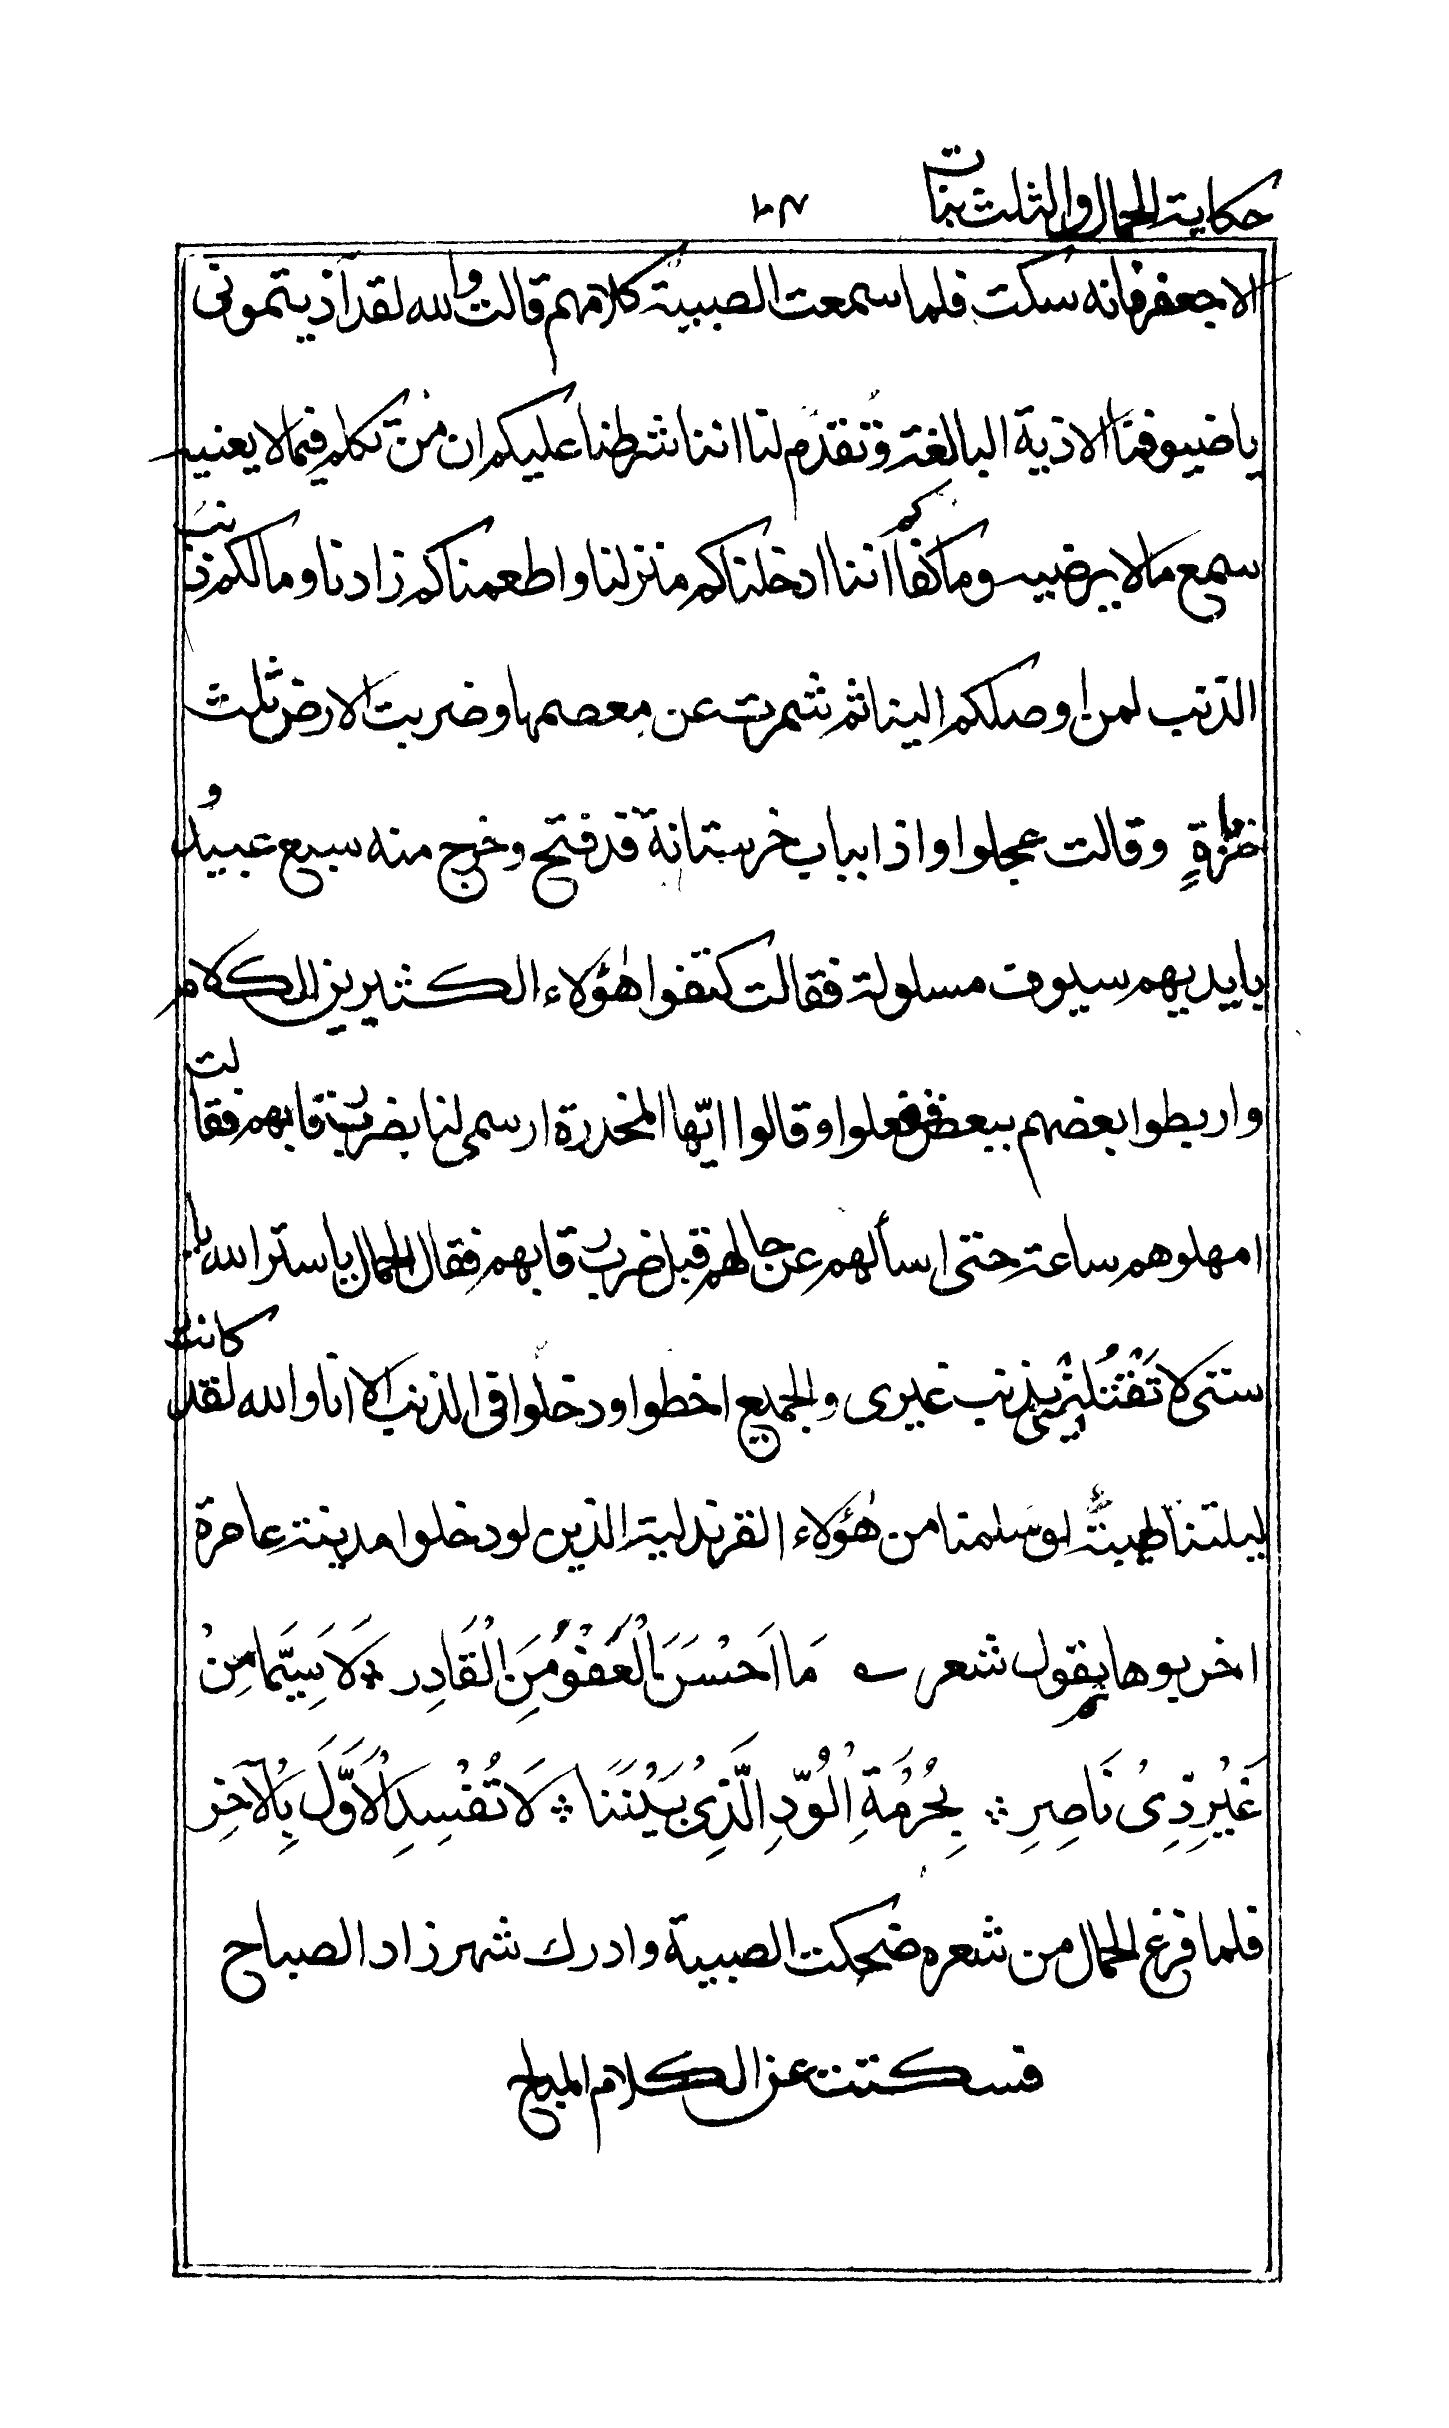 حكاية الحمال والثلث بنات ١٠٧
الا جعفر فانه سكت فلما سمعت الصبية كلامهم قالت والله لقد آذيتموني
يا ضيوفنا الاذية البالغة وتقدّم لنا اننا شرطنا عليكم ان من تكلم فيما لا يعنيه
سمع ما لا يرضيه وما كفاكم اننا ادخلناكم منزلنا واطعمناكم زادنا وما لكم ذنب
الذنب لمن اوصلكم الينا ثم شمرت عن معصمها وضربت الارض ثلث
ضربة وقالت عجلوا واذا بباب خرستانة قد فتح وخرج منه سبع عبيد و
بايديهم سيوف مسلولة فقالت كتفوا هٰؤلاء الكثيرين الكلام
واربطوا بعضهم ببعض ففعلوا وقالوا ايّها المخدرة ارسمي لنا بضرب رقابهم فقالت
امهلوهم ساعة حتى اسألهم عن حالهم قبل ضرب رقابهم فقال الحمال يا ستر الله يا
ستى لا تَقْتُليني بذنب غيرى والجميع اخطوا ودخلوا في الذنب الا انا والله لقد كانت
ليلتنا طيبة لو سلمنا من هٰؤلاء القرندلية الذين لو دخلوا مدينة عامرة
اخربوها ثم يقول شعر مَا اَحْسَنَ الْعَفْوَ مِنَ الْقَادِرِ * لَا سِيَّمَا مِنْ
غَيْرِ ذِىْ نَاصِرِ * بِحُرْمَةِ الْوُدِّ الَّذِىْ بَيْنَنَا * لَا تُفْسِدِ الْاَوَّلَ بِالْآخِرِ
فلما فرغ الحمال من شعره ضحكت الصبية وادرك شهرزاد الصباح
فسكتت عن الكلام المباح